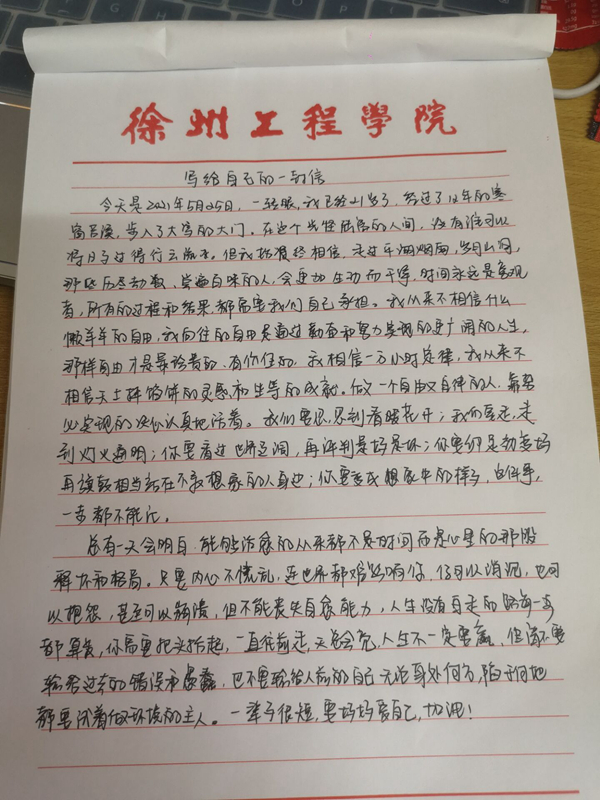 徐州工程學院
写给自己的一封信
今天是2021年5月25日，一转眼，我已经21岁了，经过了12年的寒
窗苦读，步入了大学的大门。在这个光怪陆离的人间，没有谁可以
将日子过得行云流水。但我始终相信，走过平湖烟雨，岁月山河，
那些历尽劫数、尝遍百味的人，会更加生动而干净，时间永远是旁观
者，所有的过程和结果，都需要我们自己承担。我从来不相信什么
懒羊羊的自由，我向往的自由是通过勤奋和努力实现的更广阔的人生，
那样自由才是最珍贵的、有价值的。我相信一万小时定律，我从来不
相信天上掉馅饼的灵感和坐等的成就。做一个自由又自律的人，靠势
必实现的决心认真地活着。我们要忍，忍到春暖花开；我们要走，走
到灯火通明；你要看过世界辽阔，再评判是好是坏；你要
再旗鼓相当站在不敢想象的人身边；你要变成想象中的样子，这件事，
一步都不能让。
总有一天会明白，能够治愈的从来都不是时间而是心里的那股
释怀和格局。只要内心不慌乱，连世界都难影响你，你可以消沉，也可
以抱怨，甚至可以崩溃，但不能丧失自愈能力，人生没有白走的路每一步
都算数，你需要把头抬起，一直往前走，天总会亮，人生不一定要赢，但
输给过去的错误和，也不要输给以前的自己无论身处何方，陷于何地
都要活着做环境的主人。一辈子很短，要好好爱自己，加油！